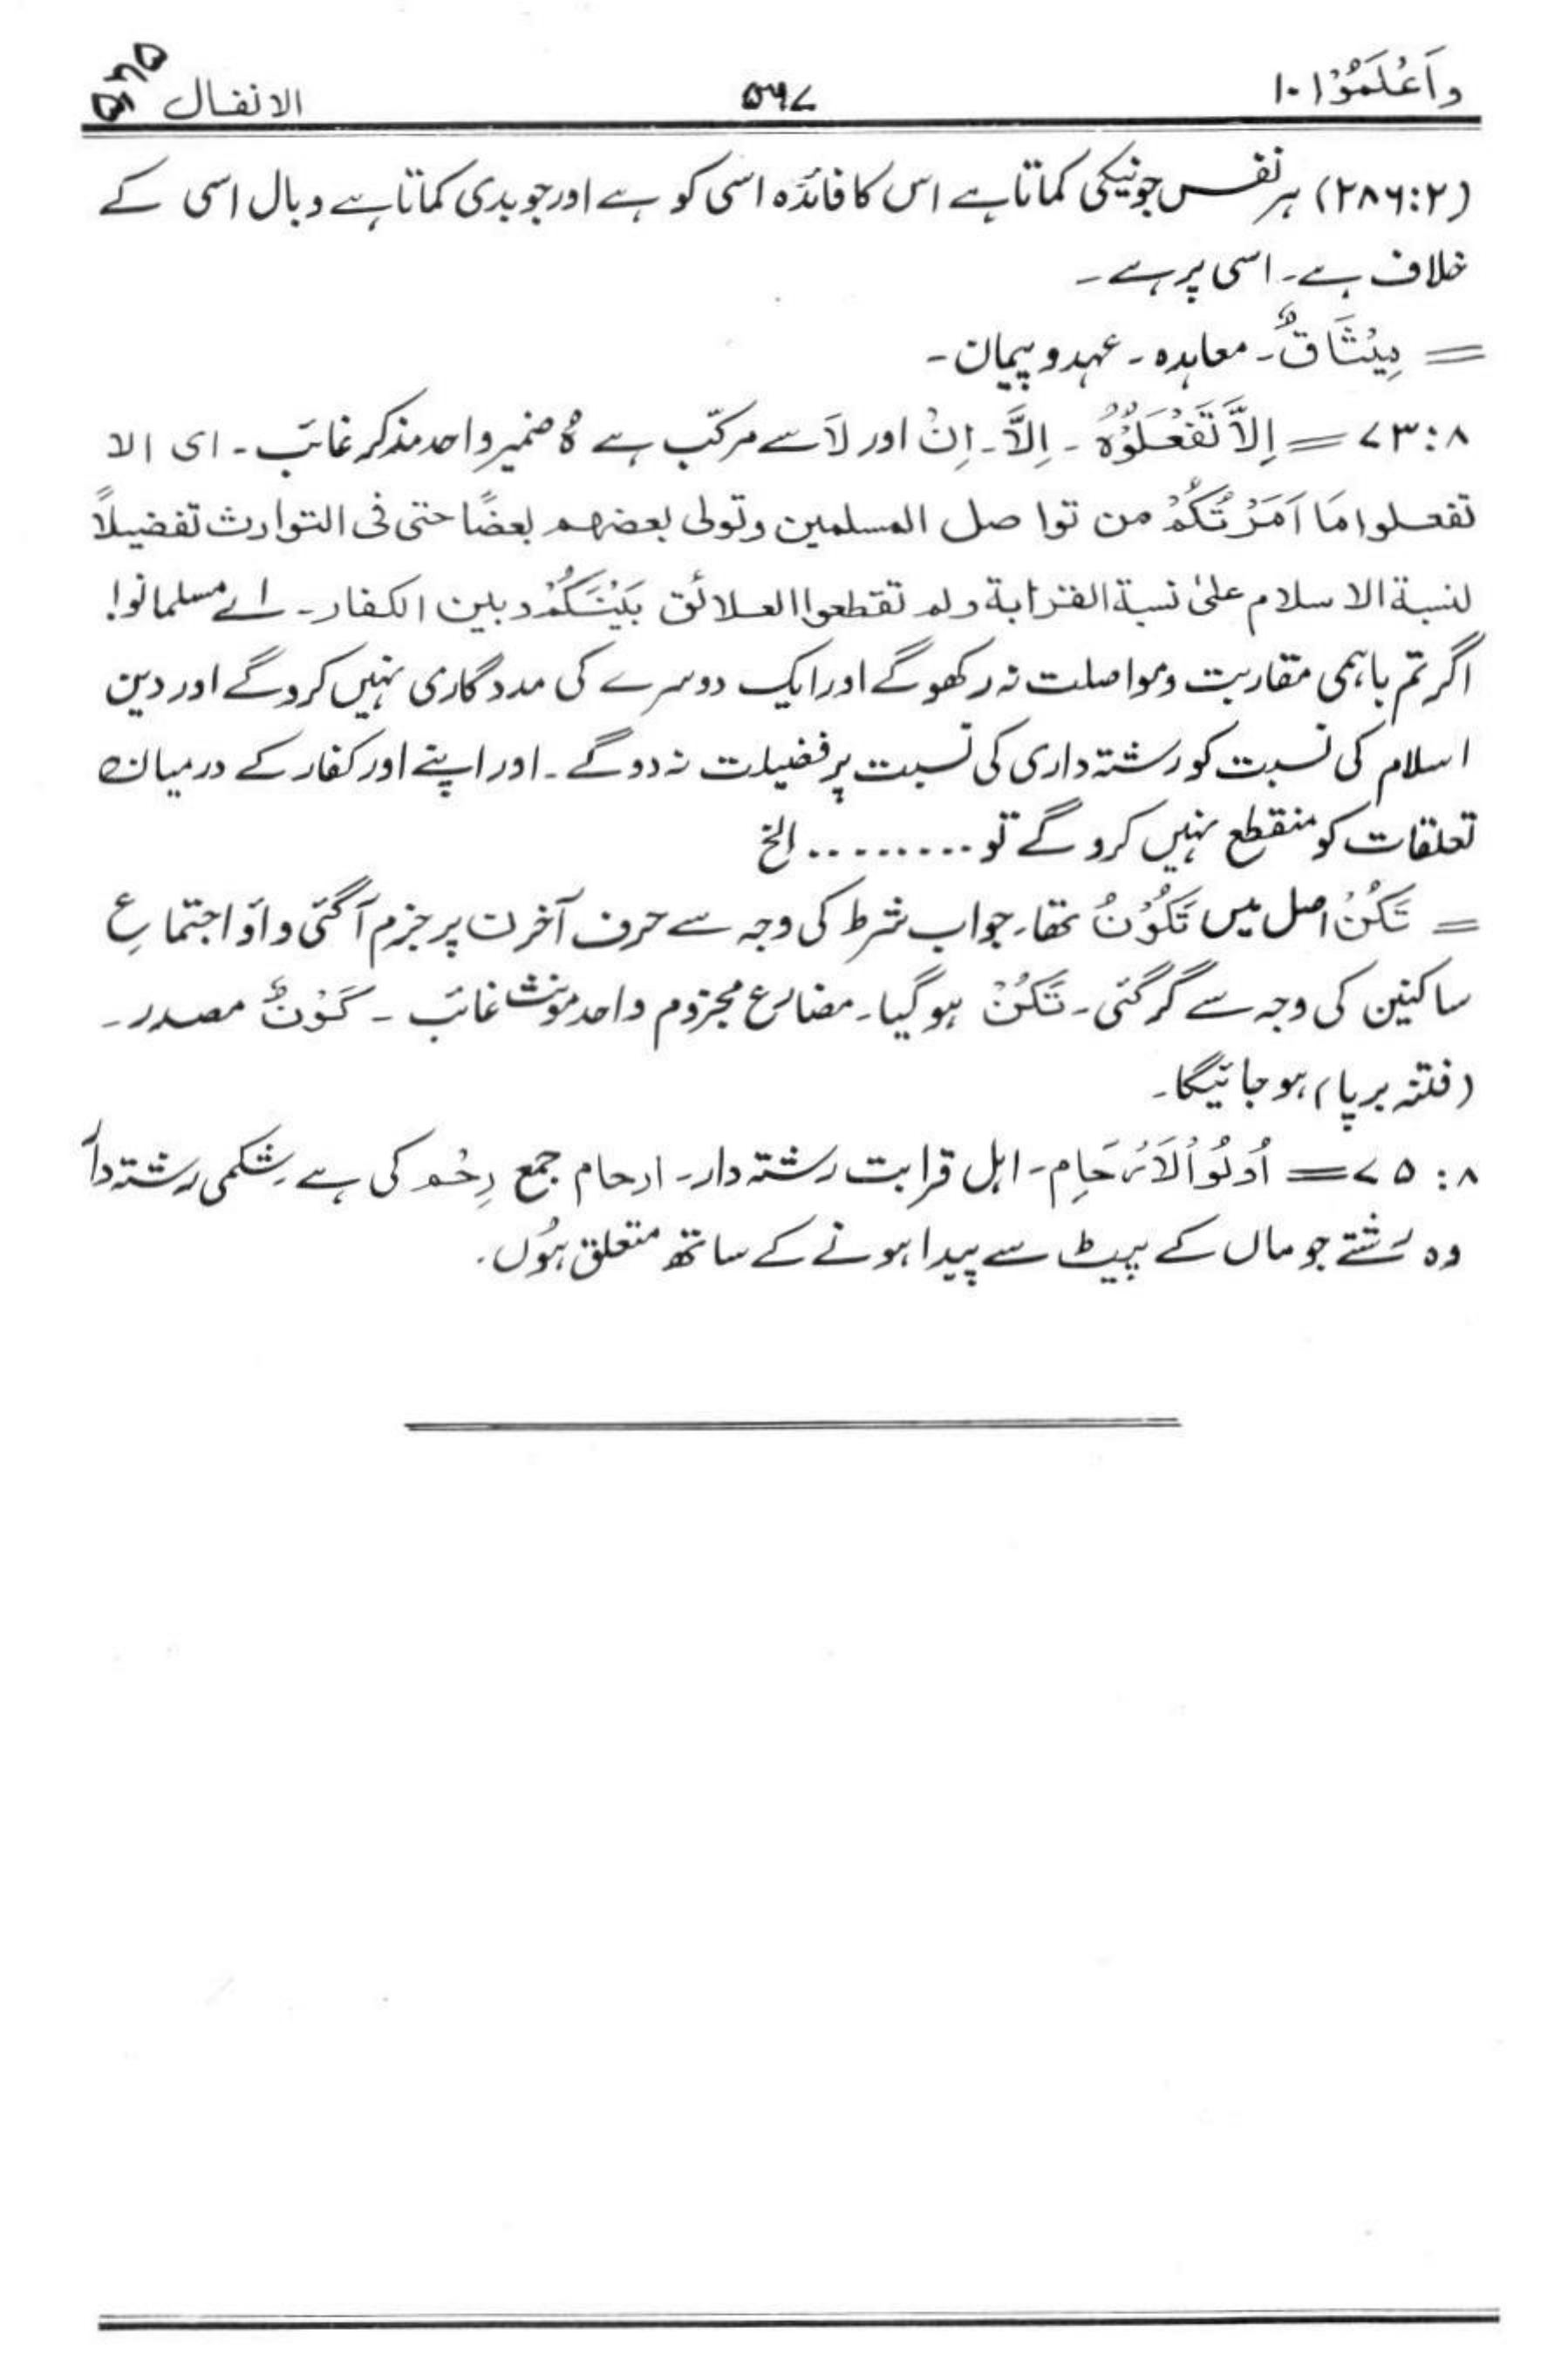 واَعْلَمُوْا ۱۰ ۵۶۷ الانفال
(۲:۲۸۶) ہر نفس جو نیکی کماتا ہے اس کا فائدہ اسی کو ہے اور جو بدی کماتا ہے وبال اسی کے
خلاف ہے۔ اسی پر ہے۔
= مِیْثَاقٌ۔ معاہدہ۔ عہد و پیمان۔
۸:۷۳ = اِلَّا تَفْعَلُوْہُ۔ اِلَّا۔ اِنْ اور لَا سے مرکّب ہے ہُ ضمیر واحد مذکر غائب۔ ای الا
تفعلوا مَا اَمَرْتُکُمْ من تواصل المسلمین وتولی بعضہم بعضًا حتی فی التوارث تفضیلاً
لنسبۃ الاسلام علیٰ نسبۃ القرابۃ ولم تقطعوا العلائق بَیْنَکُمْ وبین الکفار۔ اے مسلمانو!
اگر تم باہمی مقاربت ومواصلت نہ رکھو گے اور ایک دوسرے کی مددگاری نہیں کروگے اور دین
اسلام کی نسبت کو رشتہ داری کی نسبت پر فضیلت نہ دو گے۔ اور اپنے اور کفار کے درمیان
تعلقات کو منقطع نہیں کرو گے تو ......... الخ
= تَکُنْ اصل میں تَکُوْنُ تھا۔ جواب شرط کی وجہ سے حرف آخر ن پر جزم آگئی واؤ اجتماعِ
ساکنین کی وجہ سے گر گئی۔ تَکُنْ ہو گیا۔ مضارع مجزوم واحد مؤنث غائب۔ کَوْنٌ مصدر۔
(فتنہ برپا) ہو جائیگا۔
۸:۷۵ = اُولُوا الْاَرْحَامِ۔ اہل قرابت رشتہ دار۔ ارحام جمع رِحْم کی ہے شکمی رشتہ دار
وہ رشتے جو ماں کے پیٹ سے پیدا ہونے کے ساتھ متعلق ہوں۔